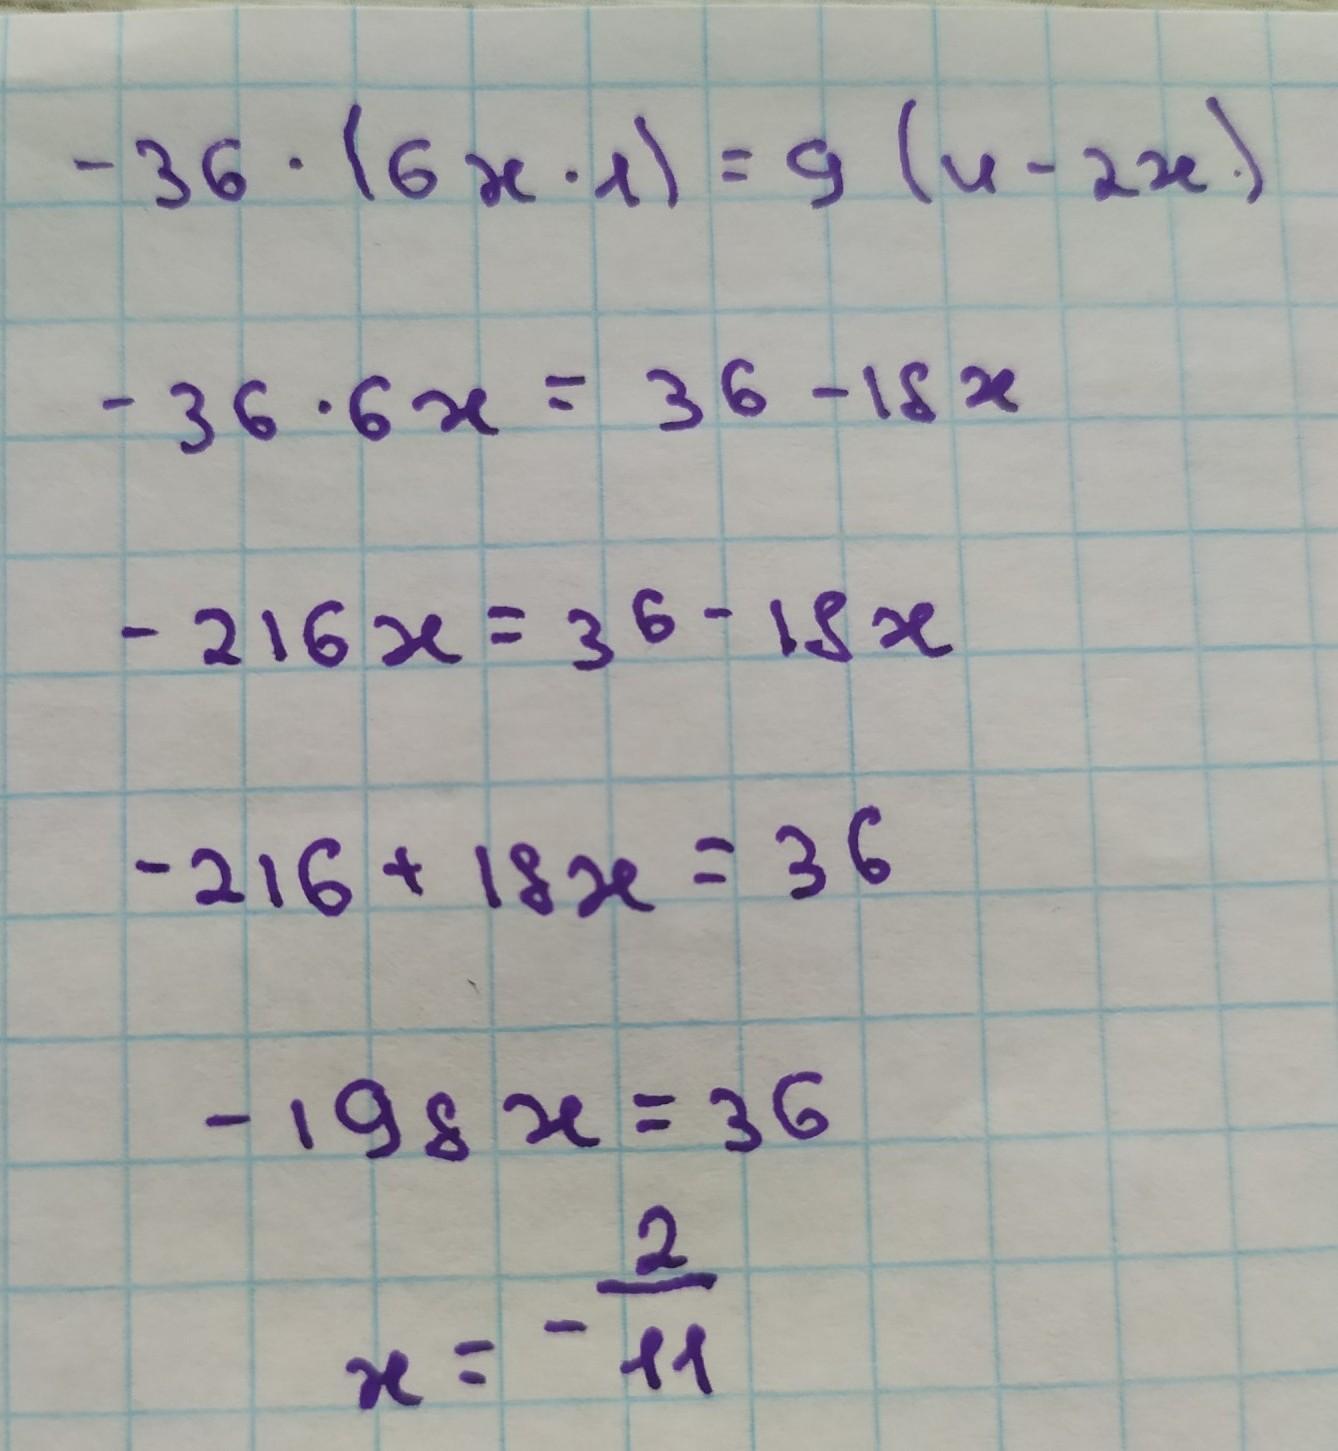 -36 · (6x · 1) = 9 (4 - 2x)
-36 · 6x = 36 - 18x
-216x = 36 - 18x
-216 + 18x = 36
-198x = 36
x = - 2/11